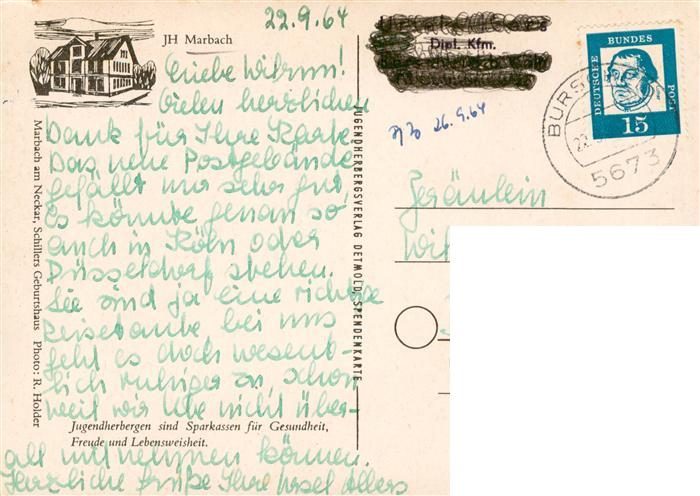 22.9.64
JH Marbach
Liebe Wihrun!
Vielen herzlichen
Dank für Ihre Karte.
Das neue Postgebäude
gefällt mir sehr gut,
es könnte genau so
auch in Köln oder
Düsseldorf stehen.
Sie sind ja eine richtige
Reisetante, bei uns
geht es doch wesent-
lich ruhiger zu, schon
weil wir Ute nicht über-
all mitnehmen können.
Herzliche Grüße Ihre Ursel Allers
Jugendherbergen sind Sparkassen für Gesundheit,
Freude und Lebensweisheit.
Marbach am Neckar, Schillers Geburtshaus Photo: R. Holder
JUGENDHERBERGSVERLAG DETMOLD, SPENDENKARTE
Dipl. Kfm.
26.9.64
DEUTSCHE BUNDES POST
15
BURS
22
5673
Fräulein